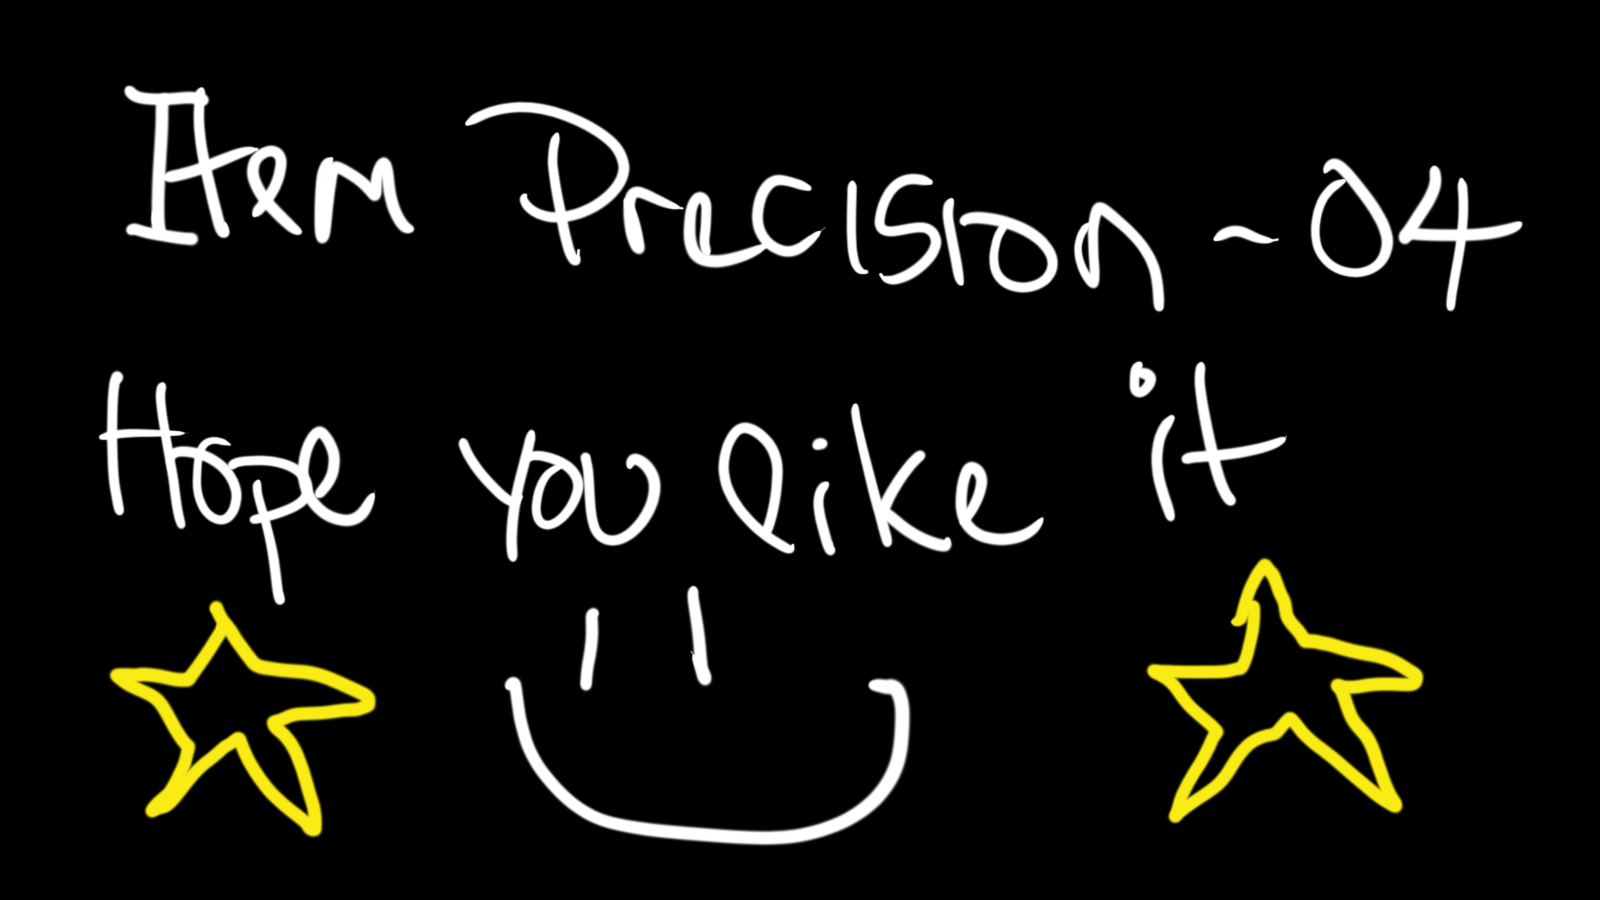 Item Precision - 04
Hope you like it